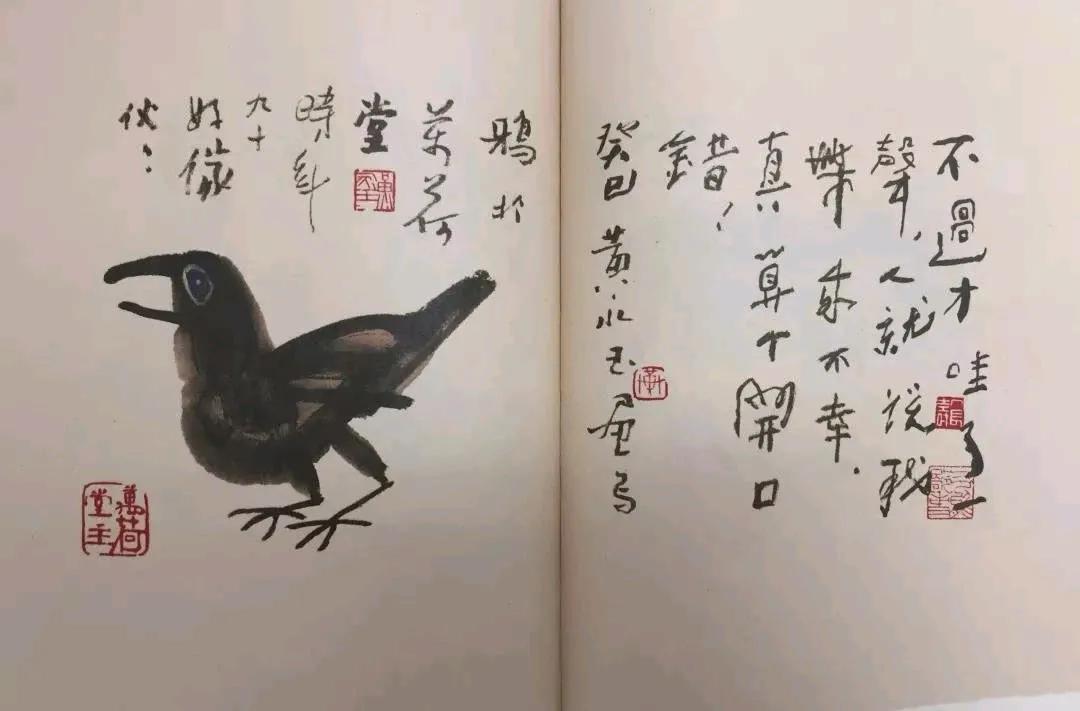 不過才哇了一
聲，人就說我
帶來不幸。
真算个開口
錯！
癸巳黄永玉画乌
鴉於
萬荷
堂
時年
九十
好傢
伙：
萬荷
堂主